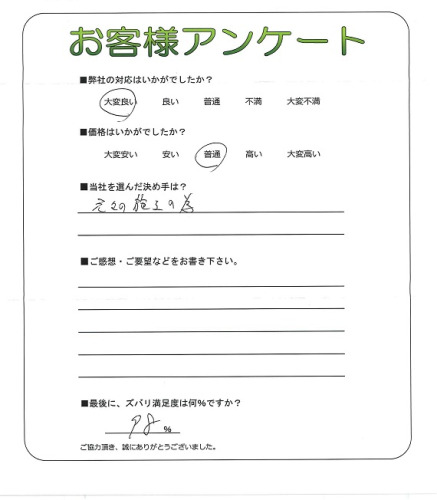 お客様アンケート
■弊社の対応はいかがでしたか？
大変良い 良い 普通 不満 大変不満
■価格はいかがでしたか？
大変安い 安い 普通 高い 大変高い
■当社を選んだ決め手は？
元々の施工の為
■ご感想・ご要望などをお書き下さい。
■最後に、ズバリ満足度は何％ですか？
98 ％
ご協力頂き、誠にありがとうございました。